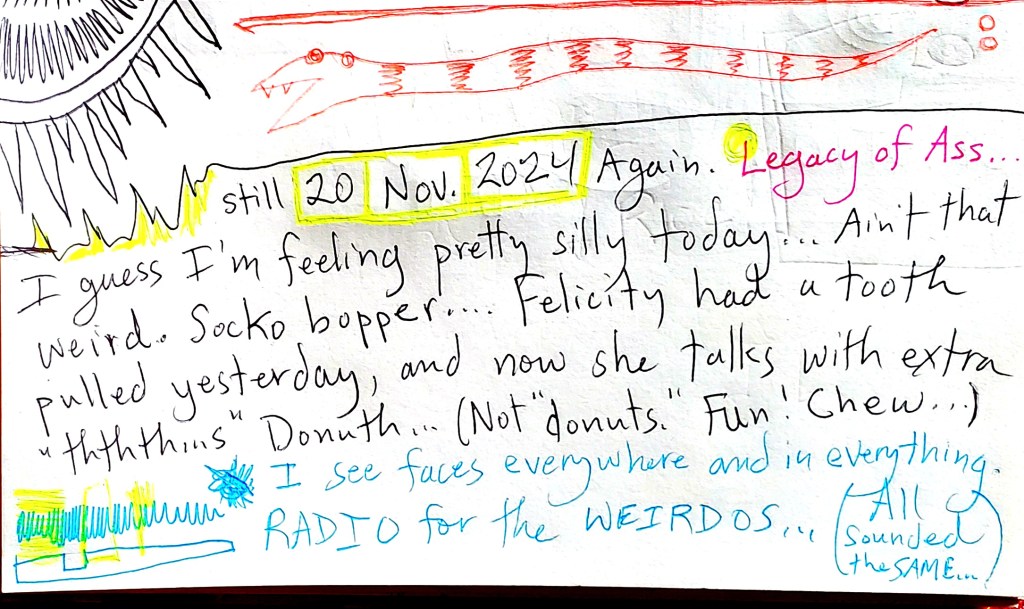 still 20 Nov. 2024 Again. Legacy of Ass...
I guess I'm feeling pretty silly today... Ain't that
weird. Socko bopper.... Felicity had a tooth
pulled yesterday, and now she talks with extra
"thththi..s" Donuth... (Not "donuts." Fun! Chew...)
I see faces everywhere and in everything.
RADIO for the WEIRDOS...
(All
sounded
the SAME...)